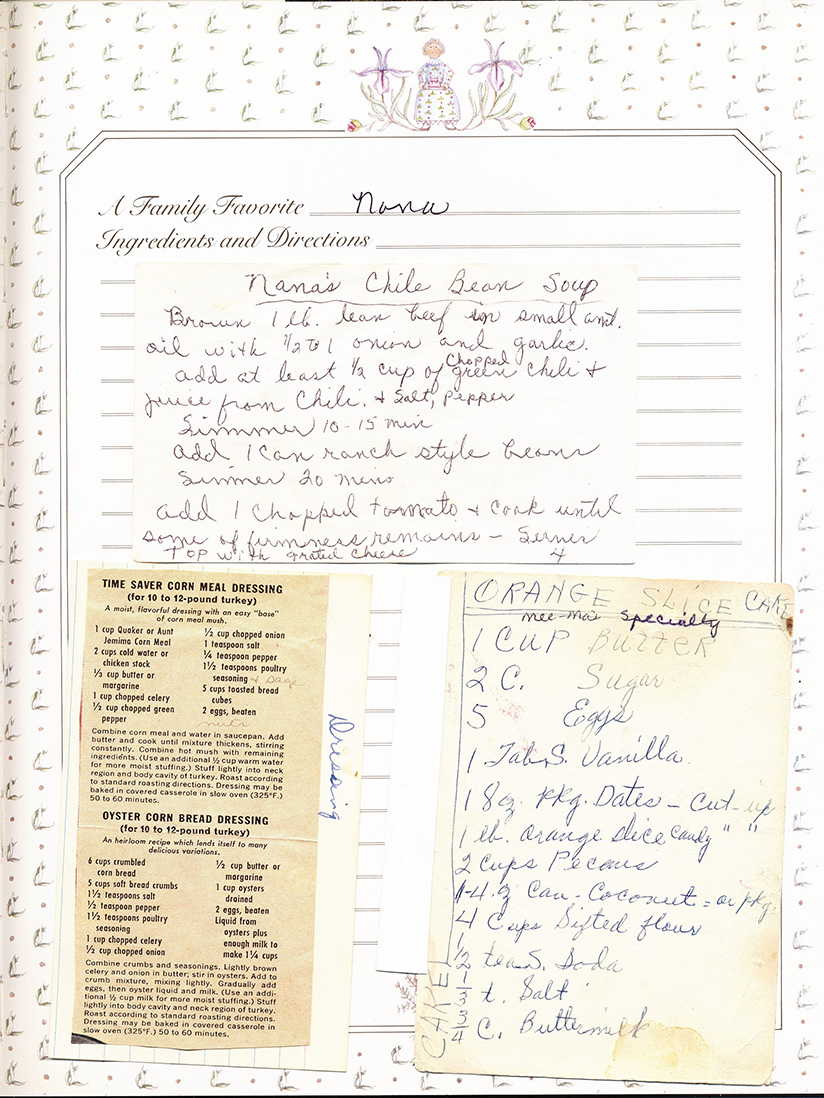 A Family Favorite Nana
Ingredients and Directions
Nana's Chile Bean Soup
Brown 1 lb. lean beef in small amt.
oil with 1/2 to 1 onion and garlic.
add at least 1/2 cup of Chopped green chili +
juice from Chili. + Salt, Pepper
Simmer 10-15 min
add 1 can ranch style beans
Simmer 20 mins
add 1 Chopped tomato + cook until
some of firmness remains - Serves
Top with grated cheese 4
TIME SAVER CORN MEAL DRESSING
(for 10 to 12-pound turkey)
A moist, flavorful dressing with an easy "base"
of corn meal mush.
1 cup Quaker or Aunt
Jemima Corn Meal
2 cups cold water or
chicken stock
1/3 cup butter or
margarine
1 cup chopped celery
1/2 cup chopped green
pepper
1/2 cup chopped onion
1 teaspoon salt
1/4 teaspoon pepper
1 1/2 teaspoons poultry
seasoning + sage
5 cups toasted bread
cubes
2 eggs, beaten
nuts
Combine corn meal and water in saucepan. Add
butter and cook until mixture thickens, stirring
constantly. Combine hot mush with remaining
ingredients. (Use an additional 1/2 cup warm water
for more moist stuffing.) Stuff lightly into neck
region and body cavity of turkey. Roast according
to standard roasting directions. Dressing may be
baked in covered casserole in slow oven (325°F.)
50 to 60 minutes.
Dressing
OYSTER CORN BREAD DRESSING
(for 10 to 12-pound turkey)
An heirloom recipe which lends itself to many
delicious variations.
6 cups crumbled
corn bread
5 cups soft bread crumbs
1 1/2 teaspoons salt
1/2 teaspoon pepper
1 1/2 teaspoons poultry
seasoning
1 cup chopped celery
1/2 cup chopped onion
1/2 cup butter or
margarine
1 cup oysters
drained
2 eggs, beaten
Liquid from
oysters plus
enough milk to
make 1 1/4 cups
Combine crumbs and seasonings. Lightly brown
celery and onion in butter; stir in oysters. Add to
crumb mixture, mixing lightly. Gradually add
eggs, then oyster liquid and milk. (Use an addi-
tional 1/2 cup milk for more moist stuffing.) Stuff
lightly into body cavity and neck region of turkey.
Roast according to standard roasting directions.
Dressing may be baked in covered casserole in
slow oven (325°F.) 50 to 60 minutes.
ORANGE SLICE CAKE
mee-ma's specialty
1 CUP BUTTER
2 C. Sugar
5 Eggs
1 Tab S. Vanilla
1 8 oz. pkg. Dates - Cut-up
1 lb. orange Slice Candy " "
2 Cups Pecans
1-4 oz Can - Coconut = or pkg.
4 Cups Sifted flour
1/2 tea S. Soda
1/3 t. Salt
3/4 C. Buttermilk
CAKE